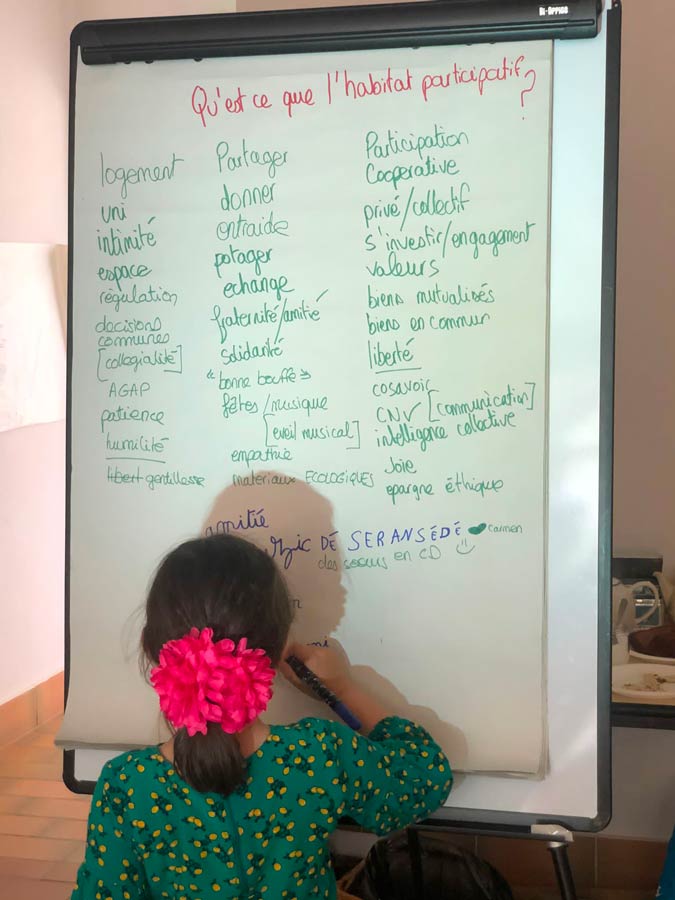 Bi-OFFICE
Qu'est ce que l'habitat participatif ?
logement
uni
intimité
espace
régulation
decisions
communes
[collegialité]
AGAP
patience
humilité
libert gentillesse
Partager
donner
entraide
potager
echange
fraternité/amitié
solidarité
"bonne bouffe"
fêtes/musique
[eveil musical]
empathie
materiaux ECOLOGIQUES
Participation
Cooperative
privé/collectif
s'investir/engagement
valeurs
biens mutualisés
biens en commun
liberté
cosavoir
CNV [communication]
intelligence collective
Joie
epargne éthique
amitié
DÉ SERANSÉDÉ Carmen
des en CD